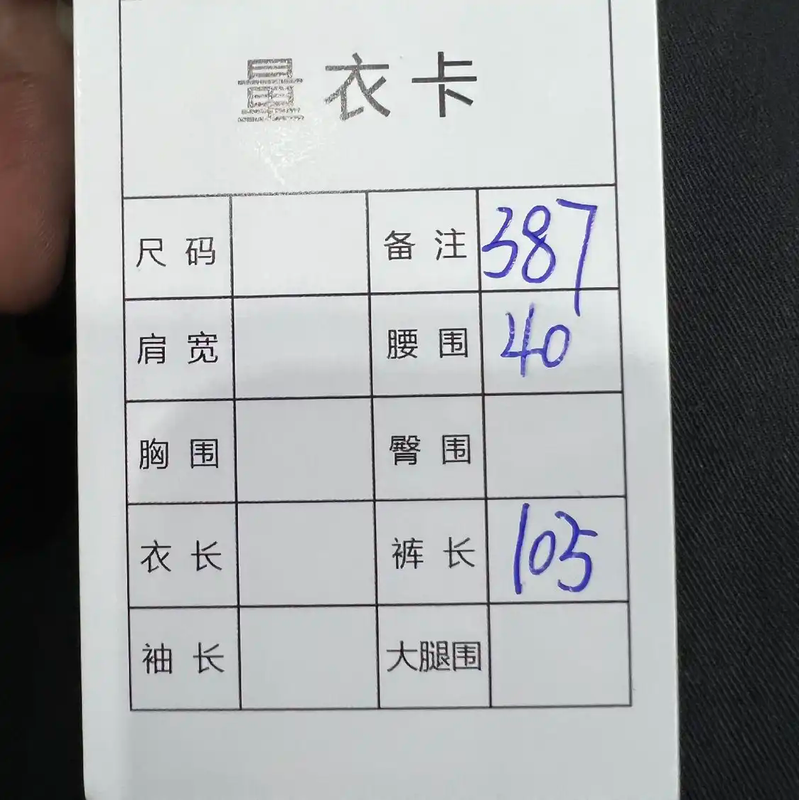 量衣卡
尺码 备注 387
肩宽 腰围 40
胸围 臀围
衣长 裤长 105
袖长 大腿围